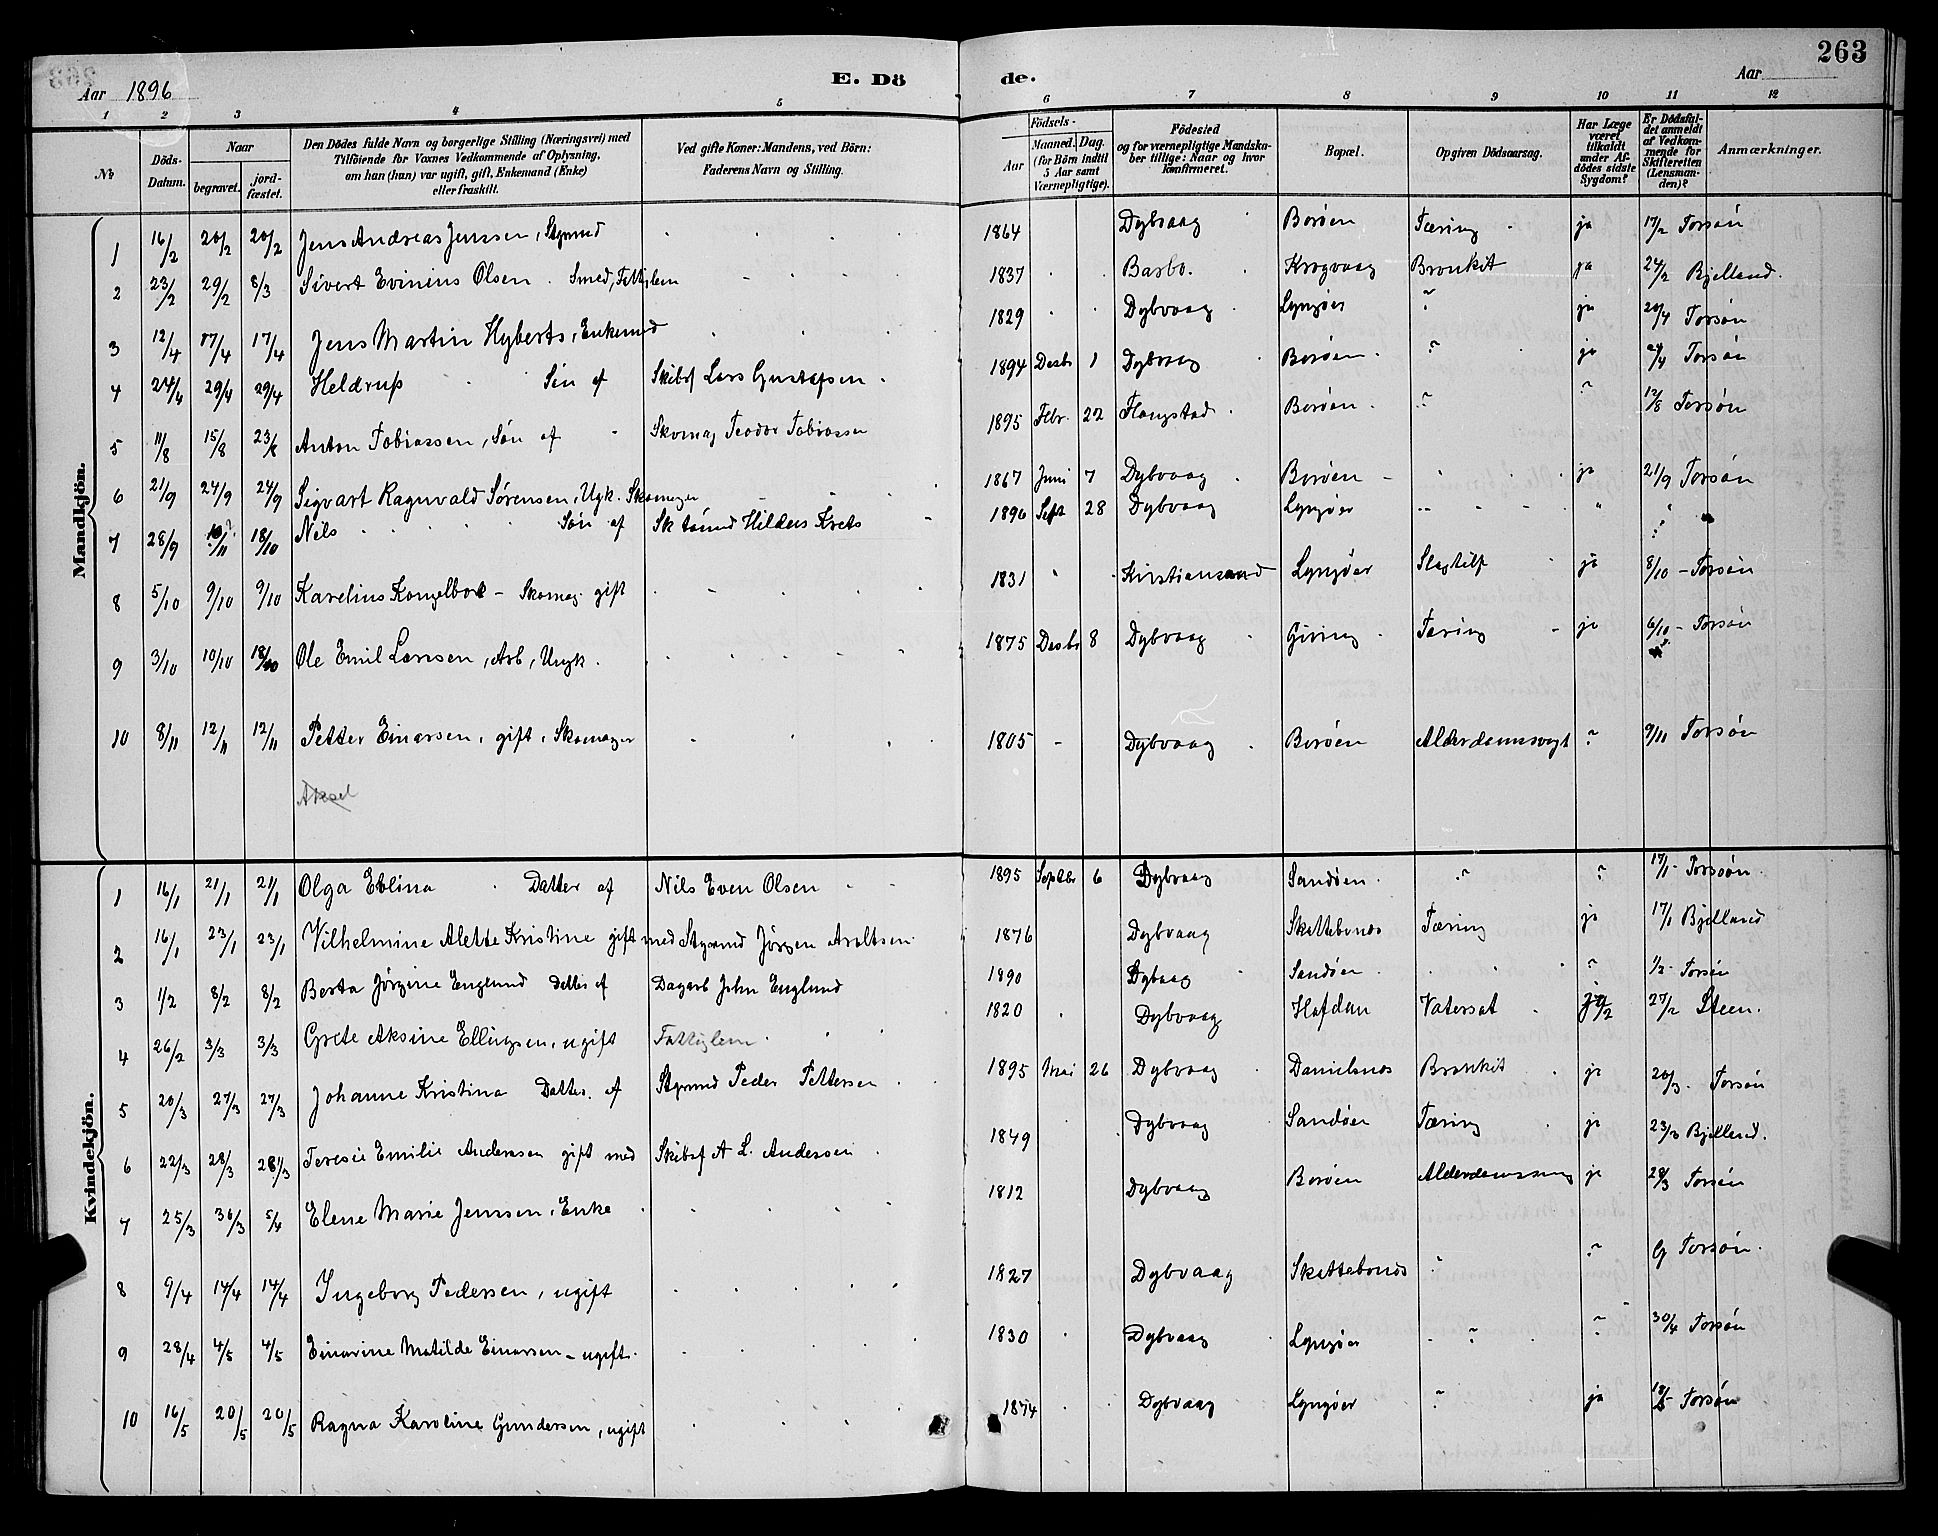 263
Aar 1896
E. Dö
de.
Aar
1 2 3 4 5 6 7 8 9 10 11 12
No
Döds-Datum.
Naar
begravet.
jord-fæstet.
Den Dödes fulde Navn og borgerlige Stilling (Næringsvei) med
Tilföiende for Voxnes Vedkommende af Oplysning,
om han (hun) var ugift, gift, Enkemand (Enke)
eller fraskilt.
Ved gifte Koner: Mandens, ved Börn:
Faderens Navn og Stilling.
Födsels-
Aar
Maaned. Dag.
(for Börn indtil
5 Aar samt
Værnepligtige).
Födested
og for værnepligtige Mandska-
ber tillige: Naar og hvor
konfirmeret.
Bopæl.
Opgiven Dödsaarsag.
Har Læge
været
tilkaldt
under Af-
dödes sidste
Sygdom?
Er Dödsfal-
det anmeldt
af Vedkom-
mende for
Skifteretten
(Lensman-
den)?
Anmærkninger.
Mandkjön.
1 16/2 20/2 20/2 Jens Andreas Jenssen, Styrmd 1864 Dybvaag Borøen Tæring ja 17/2 Torsøn
2 23/2 29/2 8/3 Sivert Evinius Olsen. Smed, Fattiglem 1837 Barbo. Krogvaag Bronkit ja 24/2 Bjelland.
3 12/4 17/4 17/4 Jens Martin Hyberts, Enkemd 1829 Dybvaag Lyngøer ? ja 20/4 Torsøn
4 24/4 29/4 29/4 Heldrup Søn af Skibsf Lars Gustafsen. 1894 Desbr 1 Dybvaag Borøen. ? ja 24/4 Torsøn
5 11/8 15/8 23/8 Anton Tobiassen, Søn af Skomag Teodor Tobiassen 1895 Febr. 22 Flangstad Borøen. ? ? 12/8 Torsøn
6 21/9 24/9 24/9 Sigvart Ragnvald Sørensen, Ugk. Skomager 1867 Juni 7 Dybvaag Borøen ja 21/9 Torsøn
7 28/9 18/10 Nils Søn af Hilders Krets 1896 Sept 28 Dybvaag Lyngøer
8 5/10 9/10 9/10 Karelius Kongelbo - Skomag. gift 1831 Kristiansand Lyngøer Slagtilf ja 8/10 - Torsøn
9 3/10 10/10 18/10 Ole Emil Larsen, Arb, Ungk. 1875 Desbr 8 Dybvaag Giving Tæring ja 6/10 - Torsøn
10 8/11 12/11 12/11 Petter Einarsen, gift, Skomager 1805 Dybvaag Borøen Alderdomssvagh ? 9/11 Torsøn
Aksel
Kvindekjön.
1 16/1 21/1 21/1 Olga Eblina Datter af Nils Even Olsen 1895 Septbr 6 Dybvaag Sandøen. ? ? 17/1 - Torsøn.
2 16/1 23/1 23/1 Vilhelmine Alette Kristine gift med Styrmd Jörgen Aroltsen 1876 Dybvaag Skattebonæs Tæring ja 17/1 Bjelland
3 1/2 8/2 8/2 Berta Jörgine Englund Datter af Dagarb John Englund 1890 Dybvaag Sandøen. ? 1/2 - Torsøn
4 26/2 3/3 3/3 Grete Aksine Ellingsen, ugift Fattiglem. 1820 Dybvaag Hafdan Vatersot 27/2 Steen.
5 20/3 27/3 27/3 Johanne Kristina Datter. af Styrmd Peder Pettersen 1895 Mai 26 Dybvaag Danielsnæs Bronkit ja 20/3. Torsøn
6 22/3 28/3 28/3 Teresie Emilie Andersen gift med Skibsf A L. Andersen 1849 Dybvaag Sandøen Tæring ja 23/3 Bjelland.
7 25/3 30/3 5/4 Elene Marie Jenssen, Enke 1812 Dybvaag Borøen ja 28/3 Torsøn
8 9/4 14/4 14/4 Ingeborg Pedersen, ugift 1827 Dybvaag Skattebonæs ? 9 Torsøn.
9 28/4 4/5 4/5 Einarine Matilde Einarsen - ugift. 1830 Dybvaag Lyngøer ? ? 30/4 Torsøn
10 16/5 20/5 20/5 Ragna Karoline Gundersen, ugift 1874 Dybvaag Lyngøer ? ja 18/5 - Torsøn